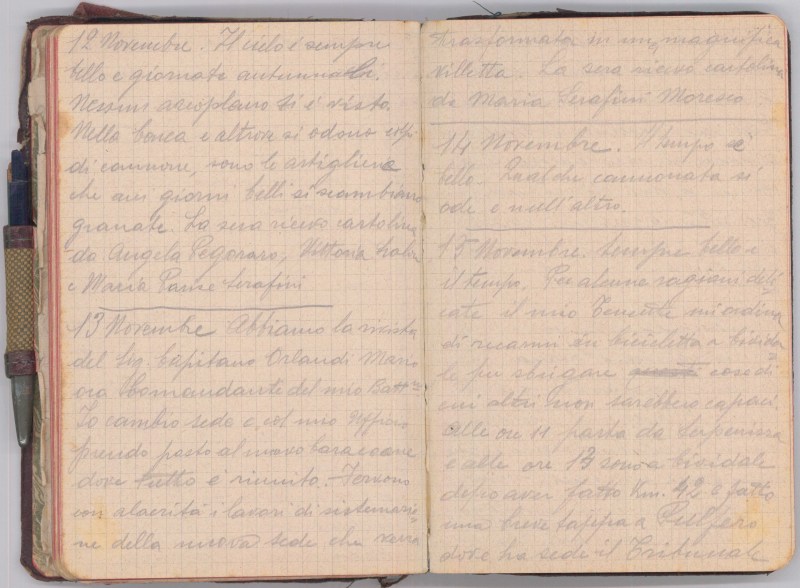 12 Novembre. Il cielo è sempre
bello e giornate autunnali.
Nessun aeroplano si è visto.
Nella conca e altrove si odono colpi
di cannone, sono le artiglierie
che nei giorni belli si scambiano
granate. La sera ricevo cartolina
da Angela Pegoraro, Vittoria
e Maria Panze Serafini
13 Novembre Abbiamo la visita
del Sig. Capitano Orlandi Mario
ora Comandante del mio Batt.ne
Io cambio sede e, col mio Ufficio
prendo posto al nuovo baraccone
dove tutto è riunito. Fervono
con alacrità i lavori di sistemazio=
ne della nuova sede che verrà
trasformata in una magnifica
villetta. La sera ricevo cartolina
da Maria Serafini Moresco
14 Novembre. Il tempo è
bello. Qualche cannonata si
ode e null'altro.
15 Novembre. Sempre bello è
il tempo. Per alcune ragioni deli=
cate il mio Tenente mi ordina
di recarmi in bicicletta a Civida=
le per sbrigare cose di
cui altri non sarebbero capaci.
Alle ore 11 parto da Serpenizza
e alle ore 13 sono a Cividale
dopo aver fatto Km. 42 e fatto
una breve tappa a Pulfero
dove ha sede il Tribunale